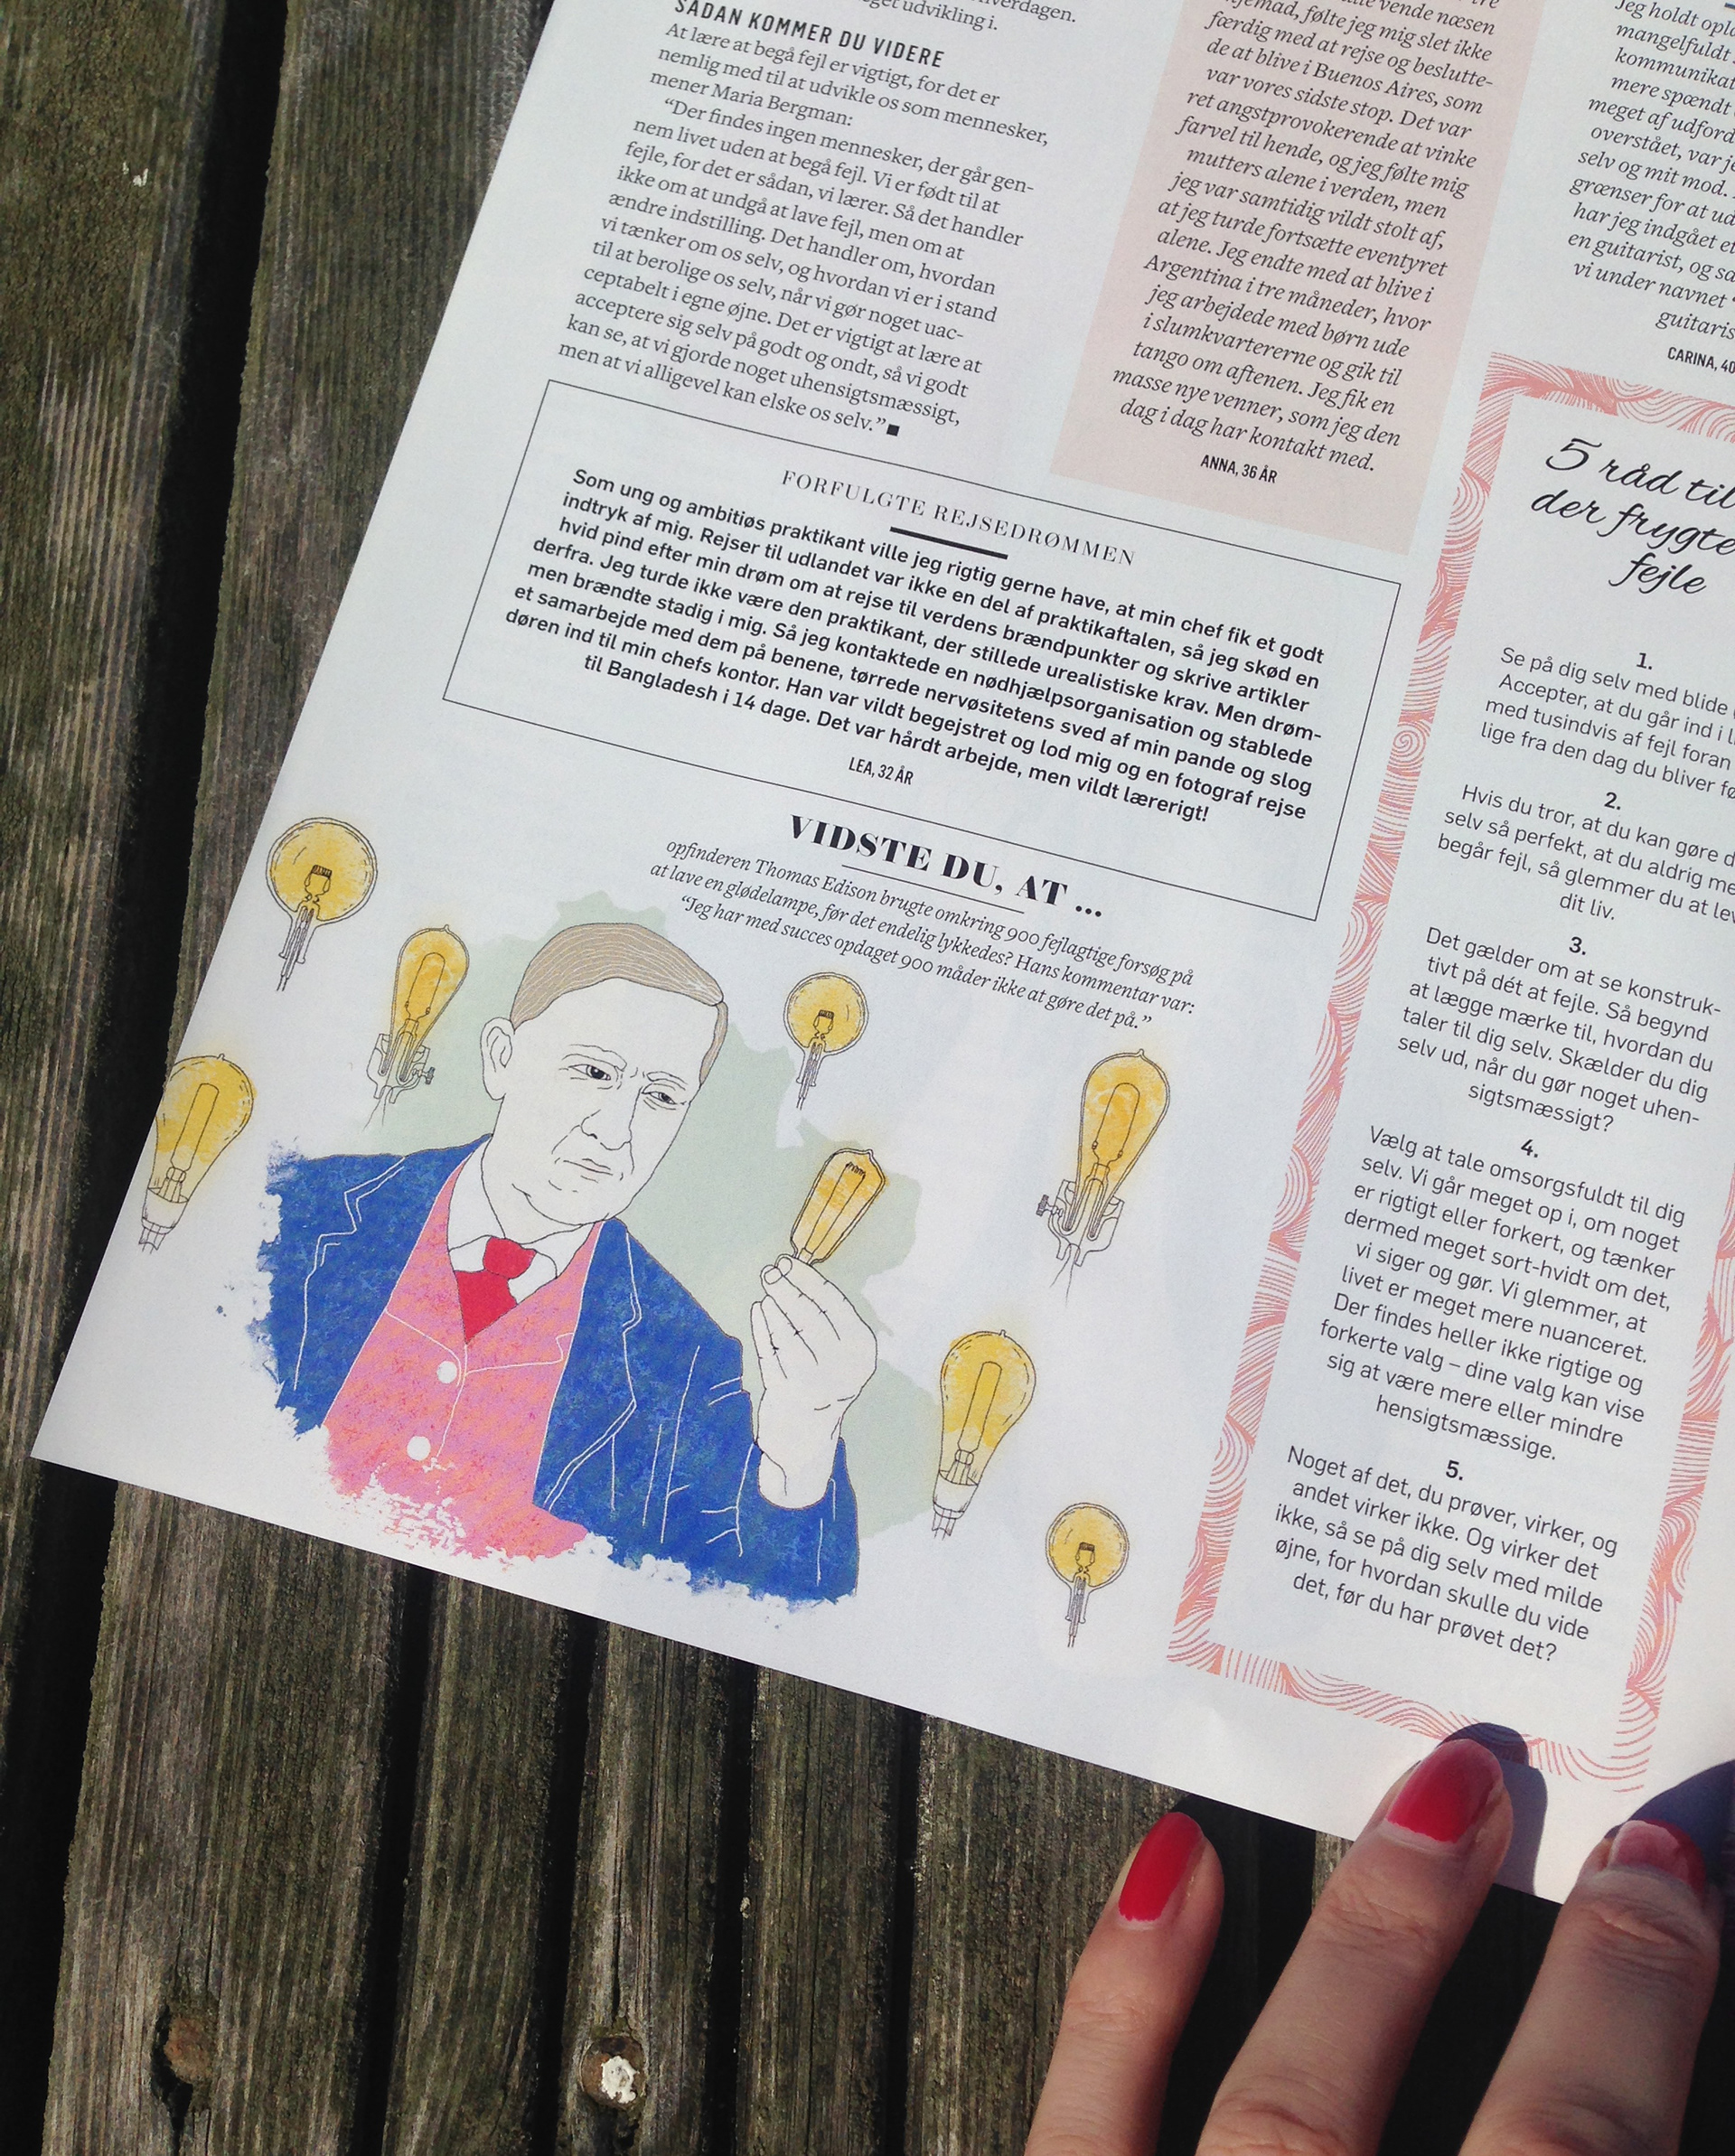 hverdagen.
udvikling i.
SÅDAN KOMMER DU VIDERE
At lære at begå fejl er vigtigt, for det er
nemlig med til at udvikle os som mennesker,
mener Maria Bergman:
“Der findes ingen mennesker, der går gen-
nem livet uden at begå fejl. Vi er født til at
fejle, for det er sådan, vi lærer. Så det handler
ikke om at undgå at lave fejl, men om at
ændre indstilling. Det handler om, hvordan
vi tænker om os selv, og hvordan vi er i stand
til at berolige os selv, når vi gør noget uac-
ceptabelt i egne øjne. Det er vigtigt at lære at
acceptere sig selv på godt og ondt, så vi godt
kan se, at vi gjorde noget uhensigtsmæssigt,
men at vi alligevel kan elske os selv.”
vende næsen
hjemad, følte jeg mig slet ikke
færdig med at rejse og beslutte-
de at blive i Buenos Aires, som
var vores sidste stop. Det var
ret angstprovokerende at vinke
farvel til hende, og jeg følte mig
mutters alene i verden, men
jeg var samtidig vildt stolt af,
at jeg turde fortsætte eventyret
alene. Jeg endte med at blive i
Argentina i tre måneder, hvor
jeg arbejdede med børn ude
i slumkvartererne og gik til
tango om aftenen. Jeg fik en
masse nye venner, som jeg den
dag i dag har kontakt med.
ANNA, 36 ÅR
Jeg holdt
mangelfuldt
mere spændt
meget af
overstået, var
selv og mit mod.
grænser for at
har jeg indgået
en guitarist, og
vi under navnet
CARINA, 40
FORFULGTE REJSEDRØMMEN
Som ung og ambitiøs praktikant ville jeg rigtig gerne have, at min chef fik et godt
indtryk af mig. Rejser til udlandet var ikke en del af praktikaftalen, så jeg skød en
hvid pind efter min drøm om at rejse til verdens brændpunkter og skrive artikler
derfra. Jeg turde ikke være den praktikant, der stillede urealistiske krav. Men drøm-
men brændte stadig i mig. Så jeg kontaktede en nødhjælpsorganisation og stablede
et samarbejde med dem på benene, tørrede nervøsitetens sved af min pande og slog
døren ind til min chefs kontor. Han var vildt begejstret og lod mig og en fotograf rejse
til Bangladesh i 14 dage. Det var hårdt arbejde, men vildt lærerigt!
LEA, 32 ÅR
VIDSTE DU, AT ...
opfinderen Thomas Edison brugte omkring 900 fejlagtige forsøg på
at lave en glødelampe, før det endelig lykkedes? Hans kommentar var:
“Jeg har med succes opdaget 900 måder ikke at gøre det på.”
5 råd til
der frygte
fejle
1.
Se på dig selv med blide
Accepter, at du går ind i
med tusindvis af fejl foran
lige fra den dag du bliver
2.
Hvis du tror, at du kan gøre
selv så perfekt, at du aldrig
begår fejl, så glemmer du at
dit liv.
3.
Det gælder om at se konstruk-
tivt på dét at fejle. Så begynd
at lægge mærke til, hvordan du
taler til dig selv. Skælder du dig
selv ud, når du gør noget uhen-
sigtsmæssigt?
4.
Vælg at tale omsorgsfuldt til dig
selv. Vi går meget op i, om noget
er rigtigt eller forkert, og tænker
dermed meget sort-hvidt om det,
vi siger og gør. Vi glemmer, at
livet er meget mere nuanceret.
Der findes heller ikke rigtige og
forkerte valg – dine valg kan vise
sig at være mere eller mindre
hensigtsmæssige.
5.
Noget af det, du prøver, virker, og
andet virker ikke. Og virker det
ikke, så se på dig selv med milde
øjne, for hvordan skulle du vide
det, før du har prøvet det?